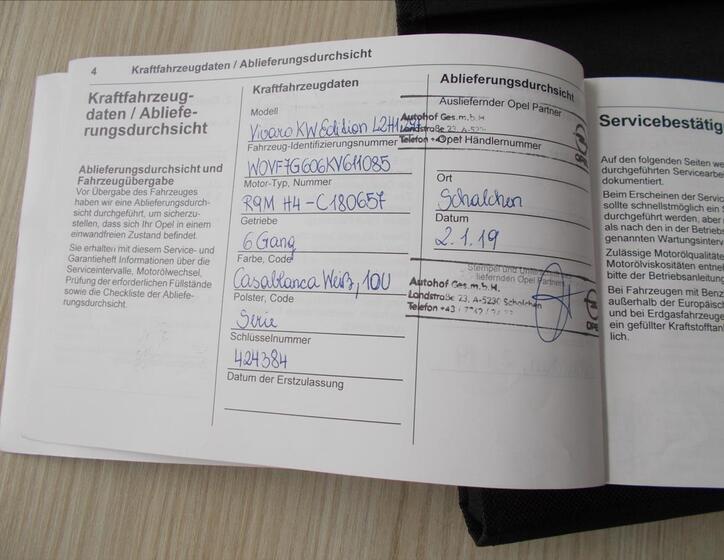 4 Kraftfahrzeugdaten / Ablieferungsdurchsicht
Kraftfahrzeug-
daten / Abliefe-
rungsdurchsicht
Ablieferungsdurchsicht und
Fahrzeugübergabe
Vor Übergabe des Fahrzeuges
haben wir eine Ablieferungsdurch-
sicht durchgeführt, um sicherzu-
stellen, dass sich Ihr Opel in einem
einwandfreien Zustand befindet.
Sie erhalten mit diesem Service- und
Garantieheft Informationen über die
Serviceintervalle, Motorölwechsel,
Prüfung der erforderlichen Füllstände
sowie die Checkliste der Abliefe-
rungsdurchsicht.
Kraftfahrzeugdaten
Modell
Vivaro KW Edition L2H1
Fahrzeug-Identifizierungsnummer
W0VF7G606KV611085
Motor-Typ, Nummer
R9M H4-C180657
Getriebe
6 Gang
Farbe, Code
Casablanca Weiß, 10U
Polster, Code
Serie
Schlüsselnummer
424384
Datum der Erstzulassung
Ablieferungsdurchsicht
Ausliefernder Opel Partner
Autohof Ges.m.b.H.
Landstraße 23, A-523
Telefon
Opel Händlernummer
Ort
Schalchen
Datum
2.1.19
Stempel und
liefernden Opel Partners
Autohof Ges.m.b.H.
Landstraße 23, A-5230 Schalchen
Telefon +43
Servicebestätig
Auf den folgenden Seiten we
durchgeführten Servicearbe
dokumentiert.
Beim Erscheinen der Servic
sollte schnellstmöglich ein S
durchgeführt werden, aber
als nach den in der Betriebs
genannten Wartungsinterv
Zulässige Motorölqualitäte
Motorölviskositäten entne
bitte der Betriebsanleitung
Bei Fahrzeugen mit Benz
außerhalb der Europäisch
und bei Erdgasfahrzeuge
ein gefüllter Kraftstofftan
lich.